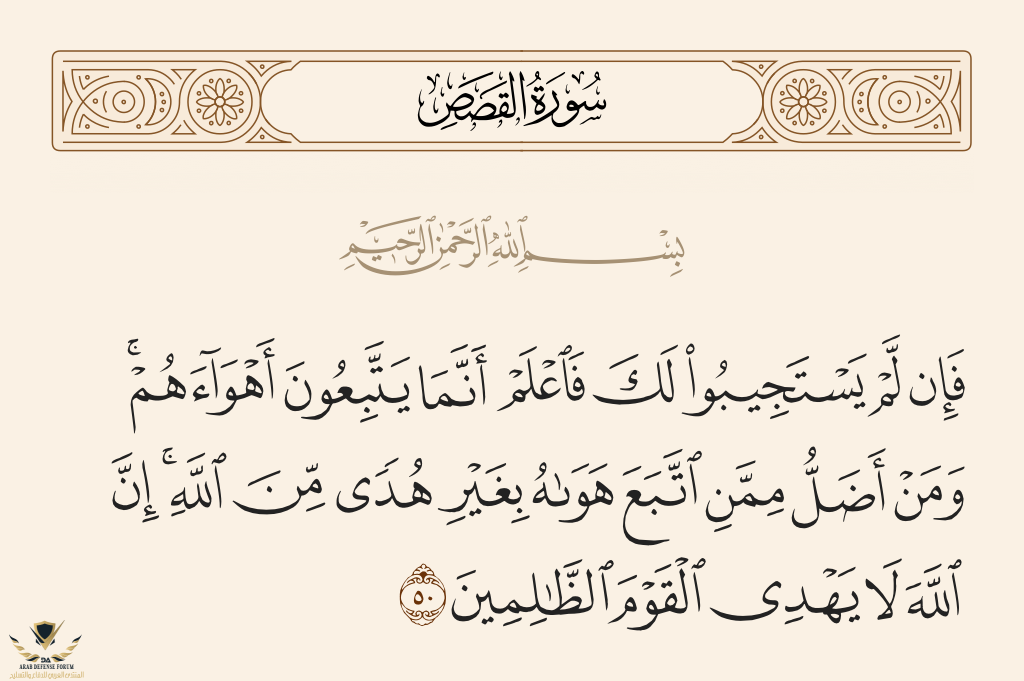 سُورَةُ القَصَصِ
بِسْمِ ٱللَّهِ ٱلرَّحْمَٰنِ ٱلرَّحِيمِ
فَإِن لَّمْ يَسْتَجِيبُوا۟ لَكَ فَٱعْلَمْ أَنَّمَا يَتَّبِعُونَ أَهْوَآءَهُمْ ۚ
وَمَنْ أَضَلُّ مِمَّنِ ٱتَّبَعَ هَوَىٰهُ بِغَيْرِ هُدًى مِّنَ ٱللَّهِ ۚ إِنَّ
ٱللَّهَ لَا يَهْدِى ٱلْقَوْمَ ٱلظَّـٰلِمِينَ ٥٠
ARAB DEFENSE FORUM
المنتدى العربي للدفاع والتسليح